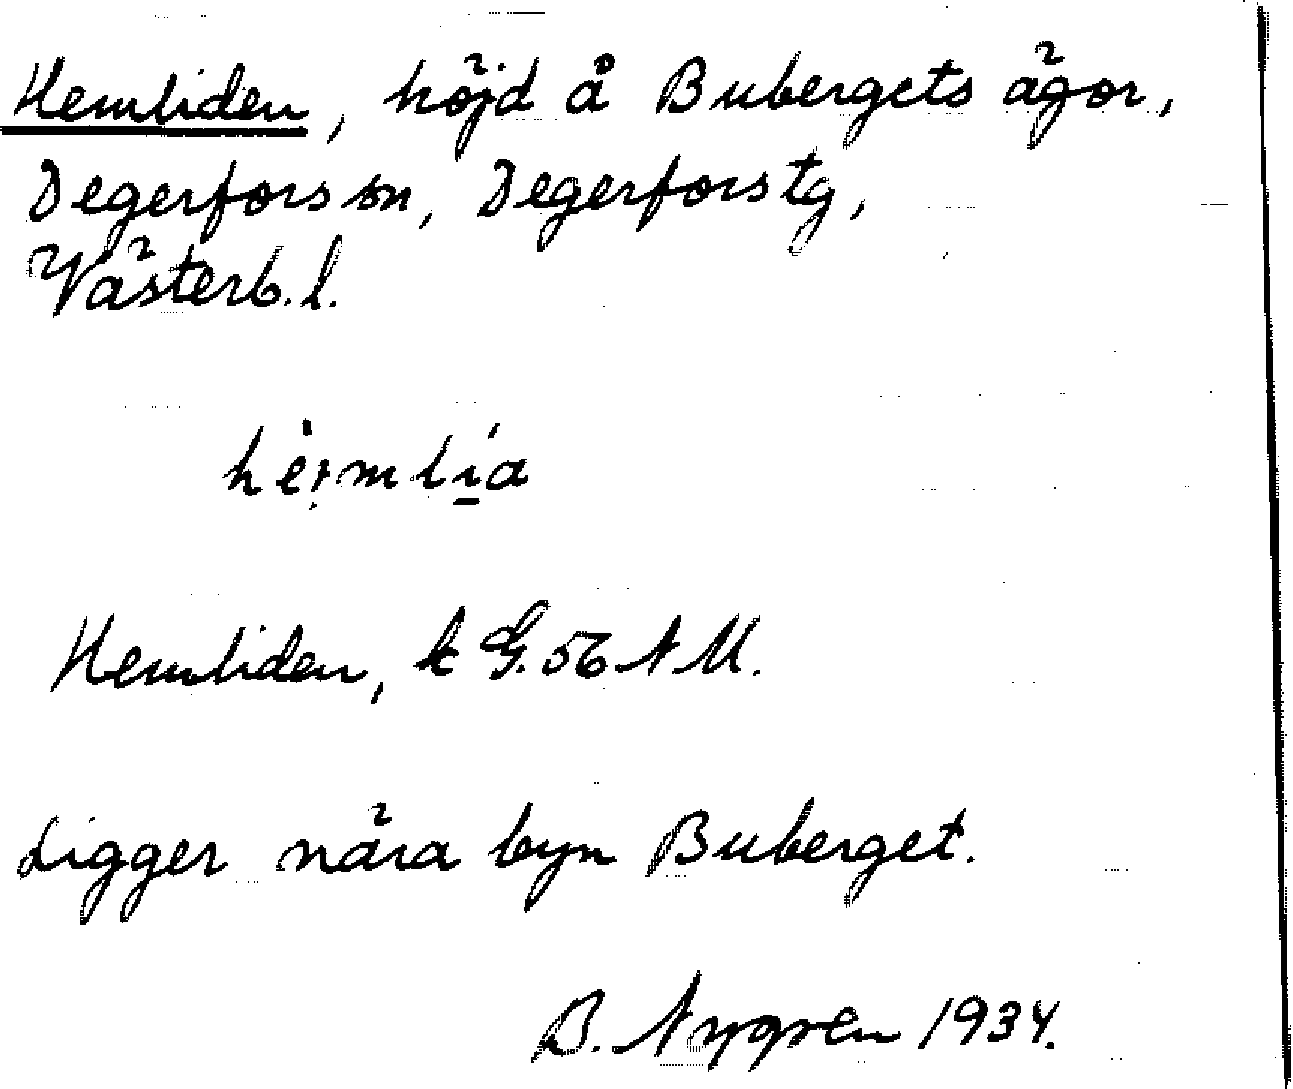 Hemliden, höjd å Bubergets ägor,
Degerfors sn, Degerfors tg,
Västerb. l.
Hemliden, k G. 56 N M.
Ligger nära byn Buberget.
B. Nygren 1934.